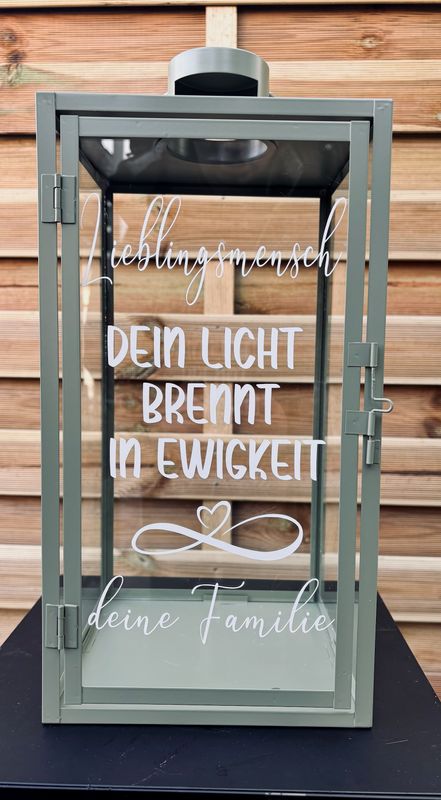 Lieblingsmensch
DEIN LICHT
BRENNT
IN EWIGKEIT
deine Familie